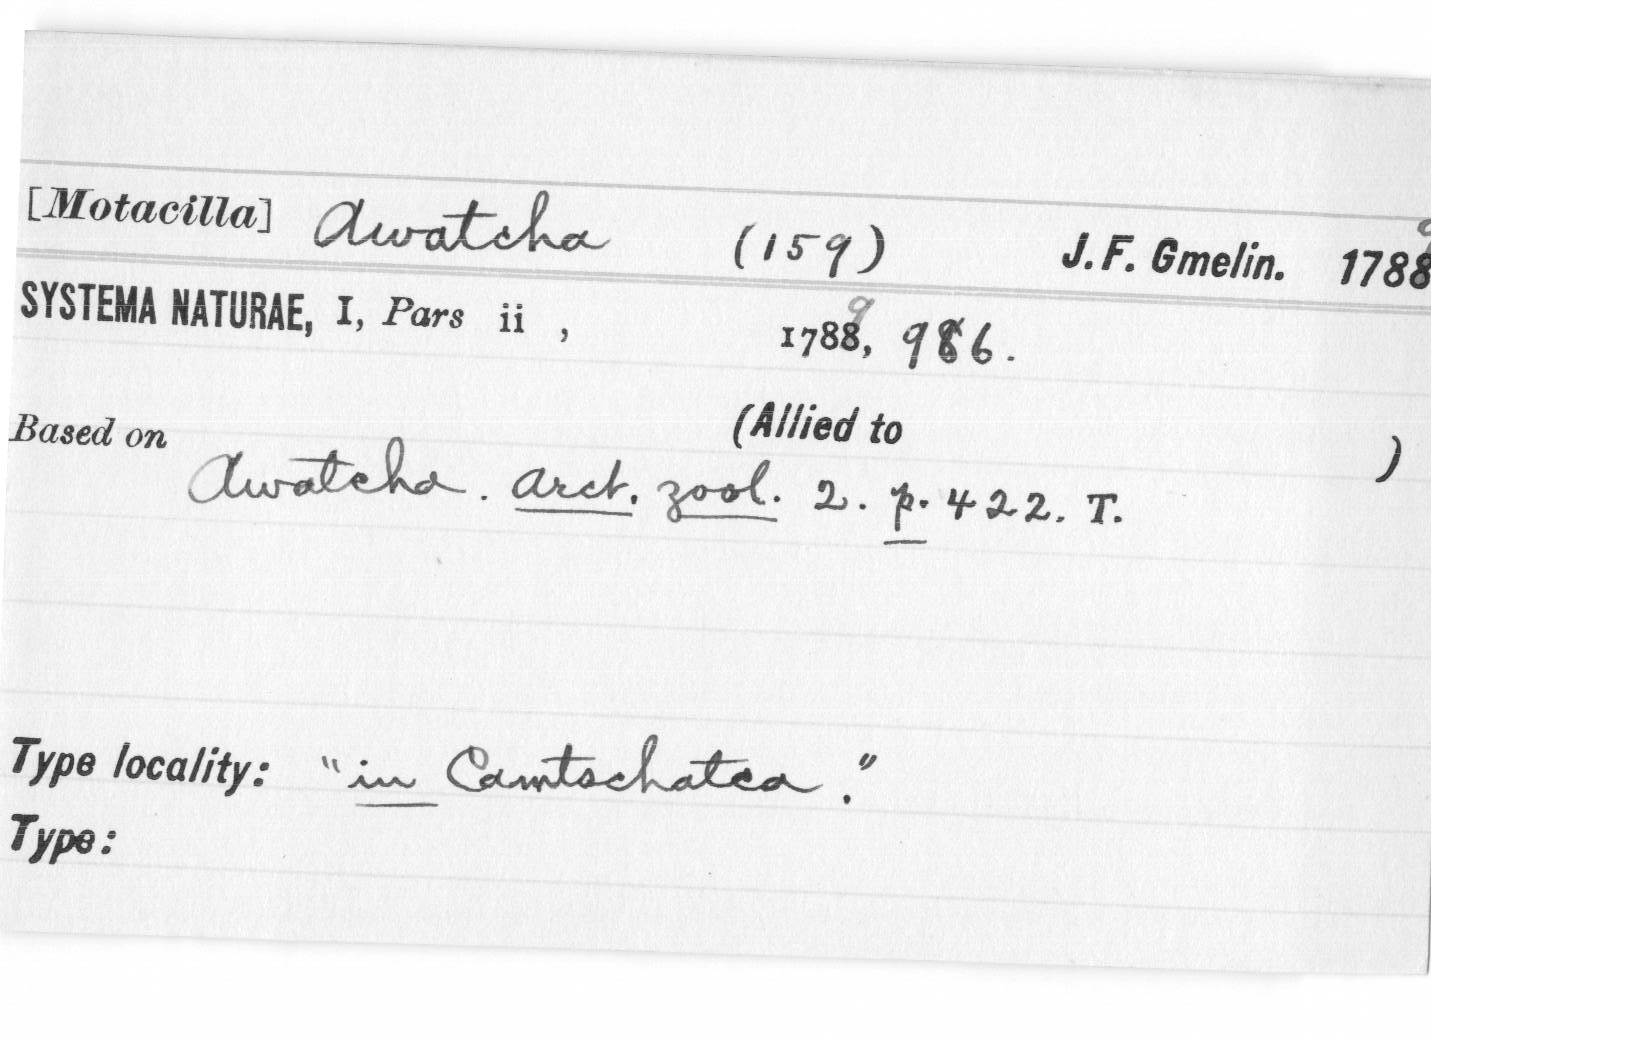 [Motacilla] Awatcha (159) J. F. Gmelin. 1788 9
SYSTEMA NATURAE, I, Pars ii , 1788 9, 986.
Based on (Allied to )
Awatcha. Arct. zool. 2. p. 422. T.
Type locality: "in Camtschatca."
Type: